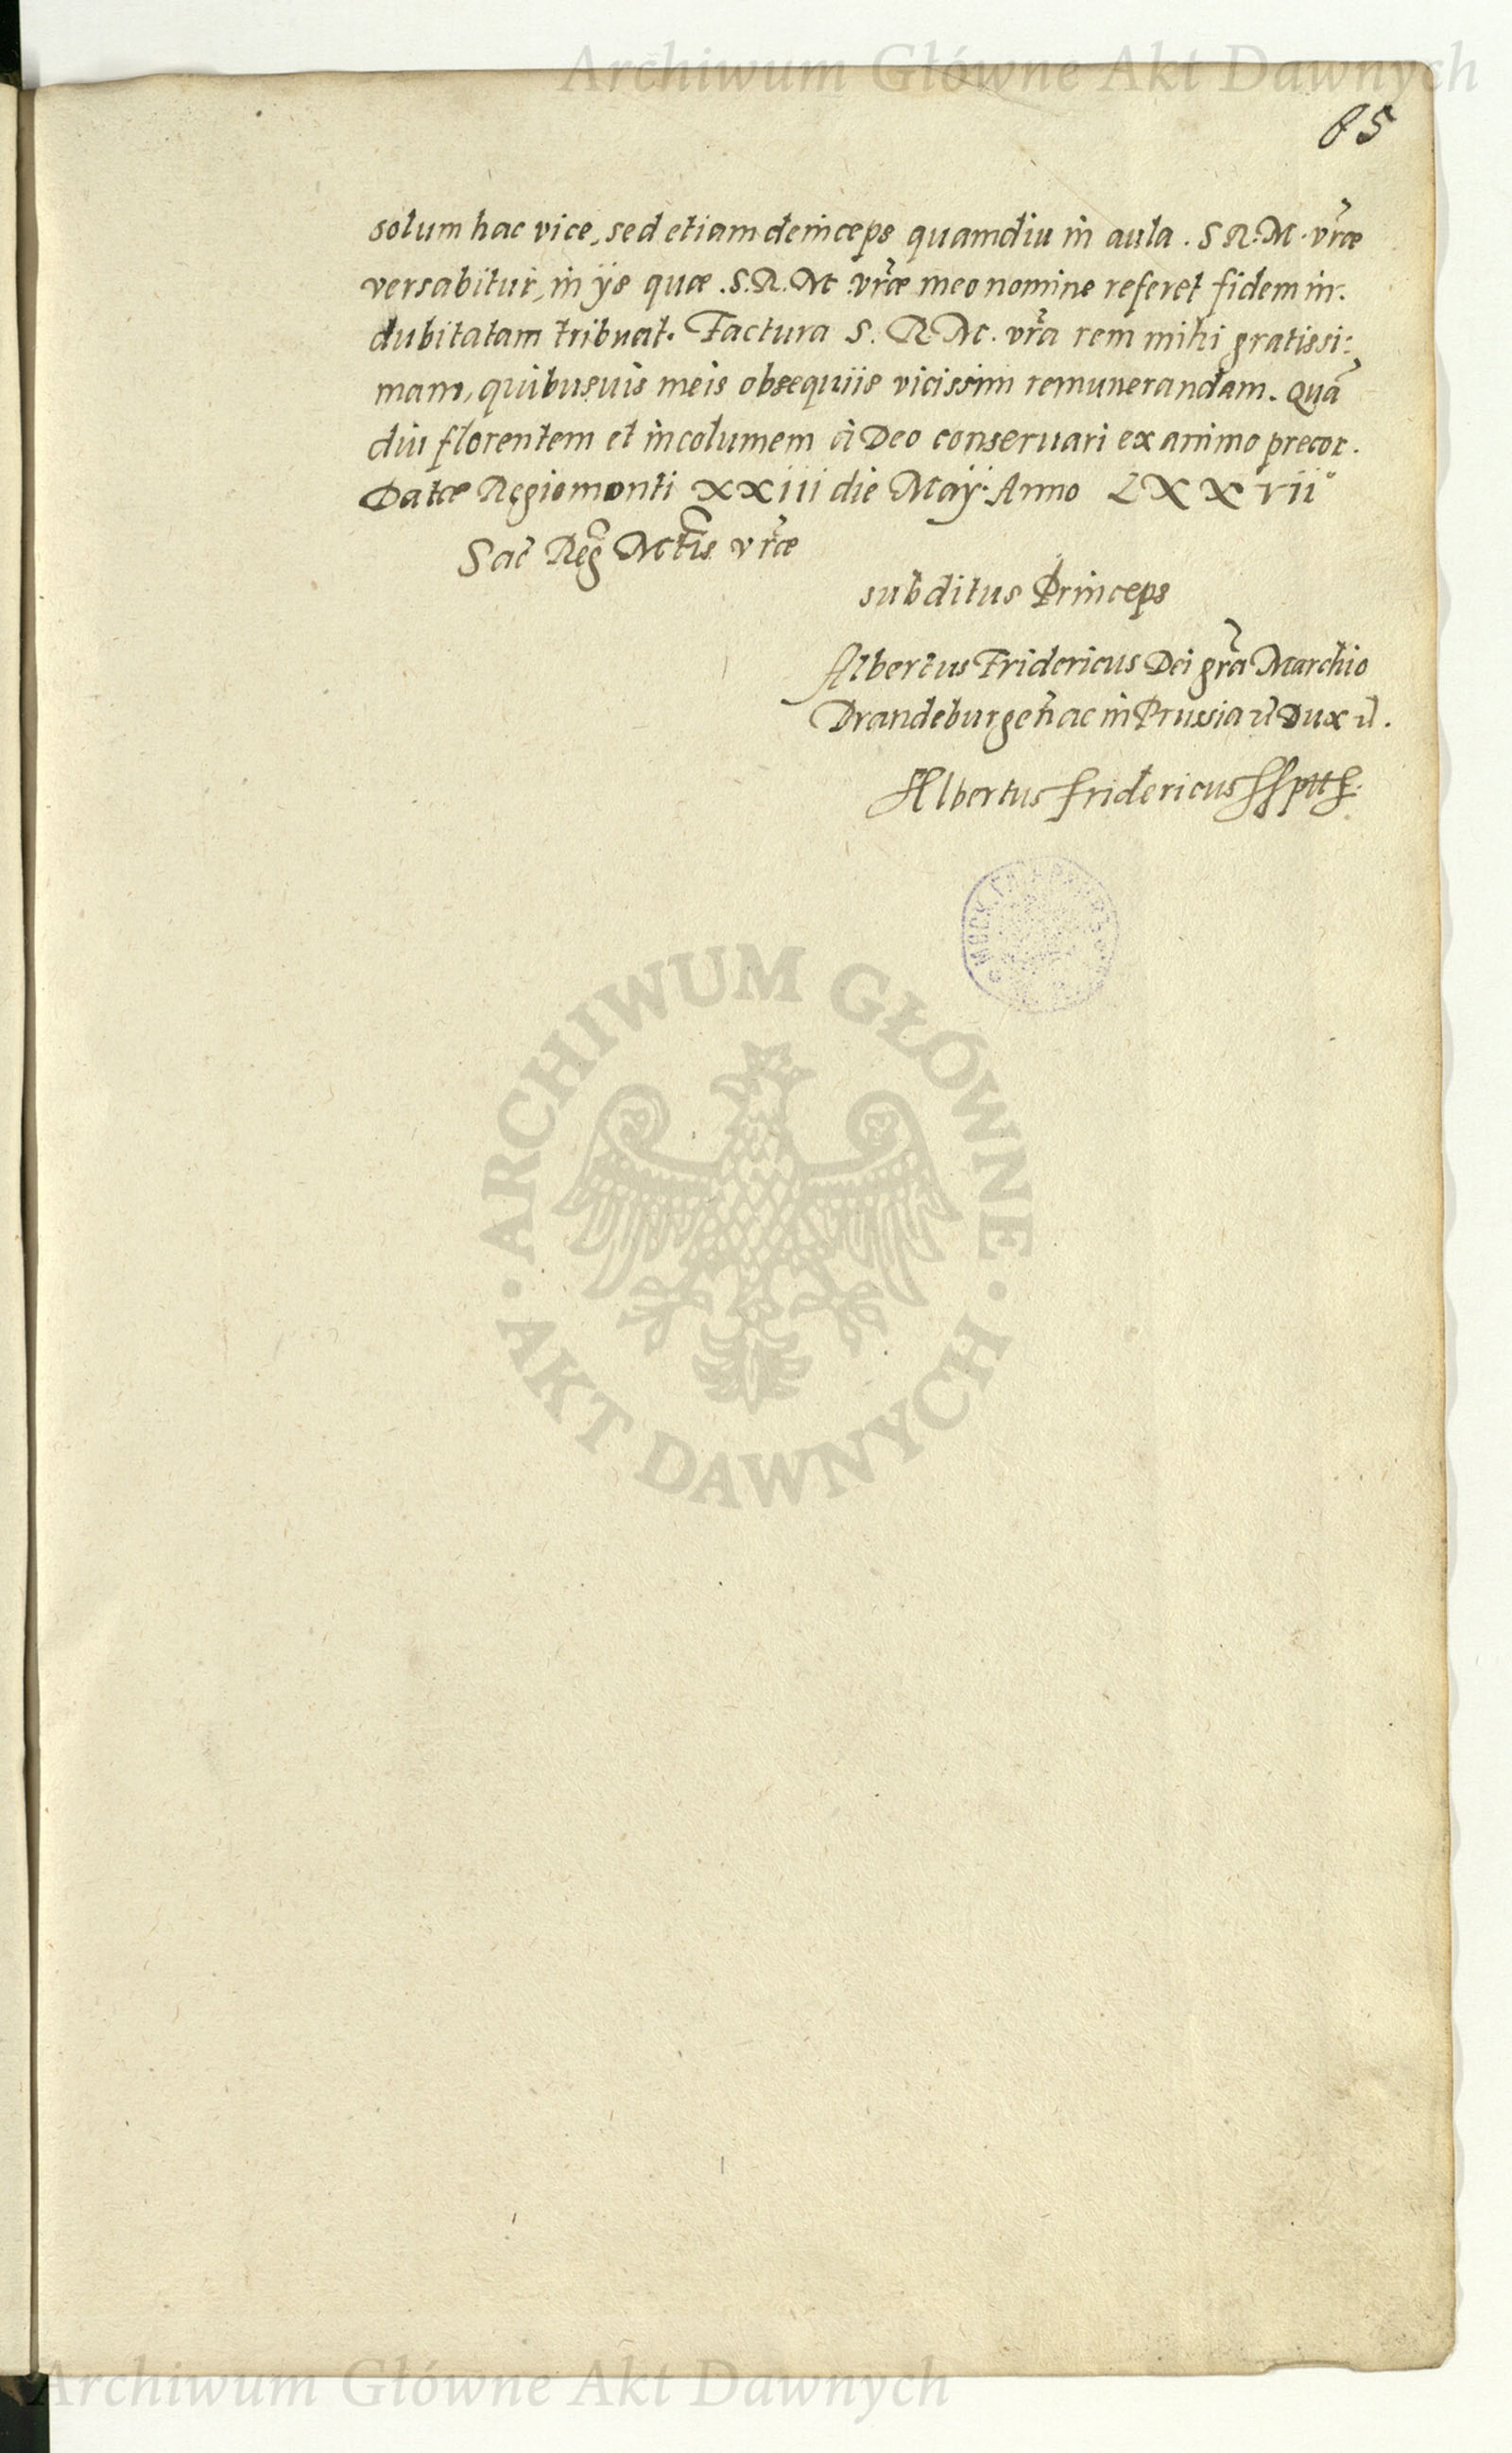 Archiwum Główne Akt Dawnych
65
solum hac vice, sed etiam deinceps quamdiu in aula . S R. M. vræ
versabitur, in ÿs quæ . S. R. M vræ meo nomine referet fidem in:
dubitatam tribuat. Factura S. R. M. vra rem mihi gratissi:
mam, quibusuis meis obsequiis vicissim remunerandam. Quā
diu florentem et incolumem à Deo conseruari ex animo precor.
Datæ Regiomonti XXiii die Maÿ. Anno LXXvii°
Sac Reg Mtis vræ
subditus Princeps
Albertus Fridericus Dei gra Marchio
Brandeburgen ac in Prussia Dux
Albertus fridericus
ARCHIWUM GŁÓWNE
AKT DAWNYCH
Archiwum Główne Akt Dawnych